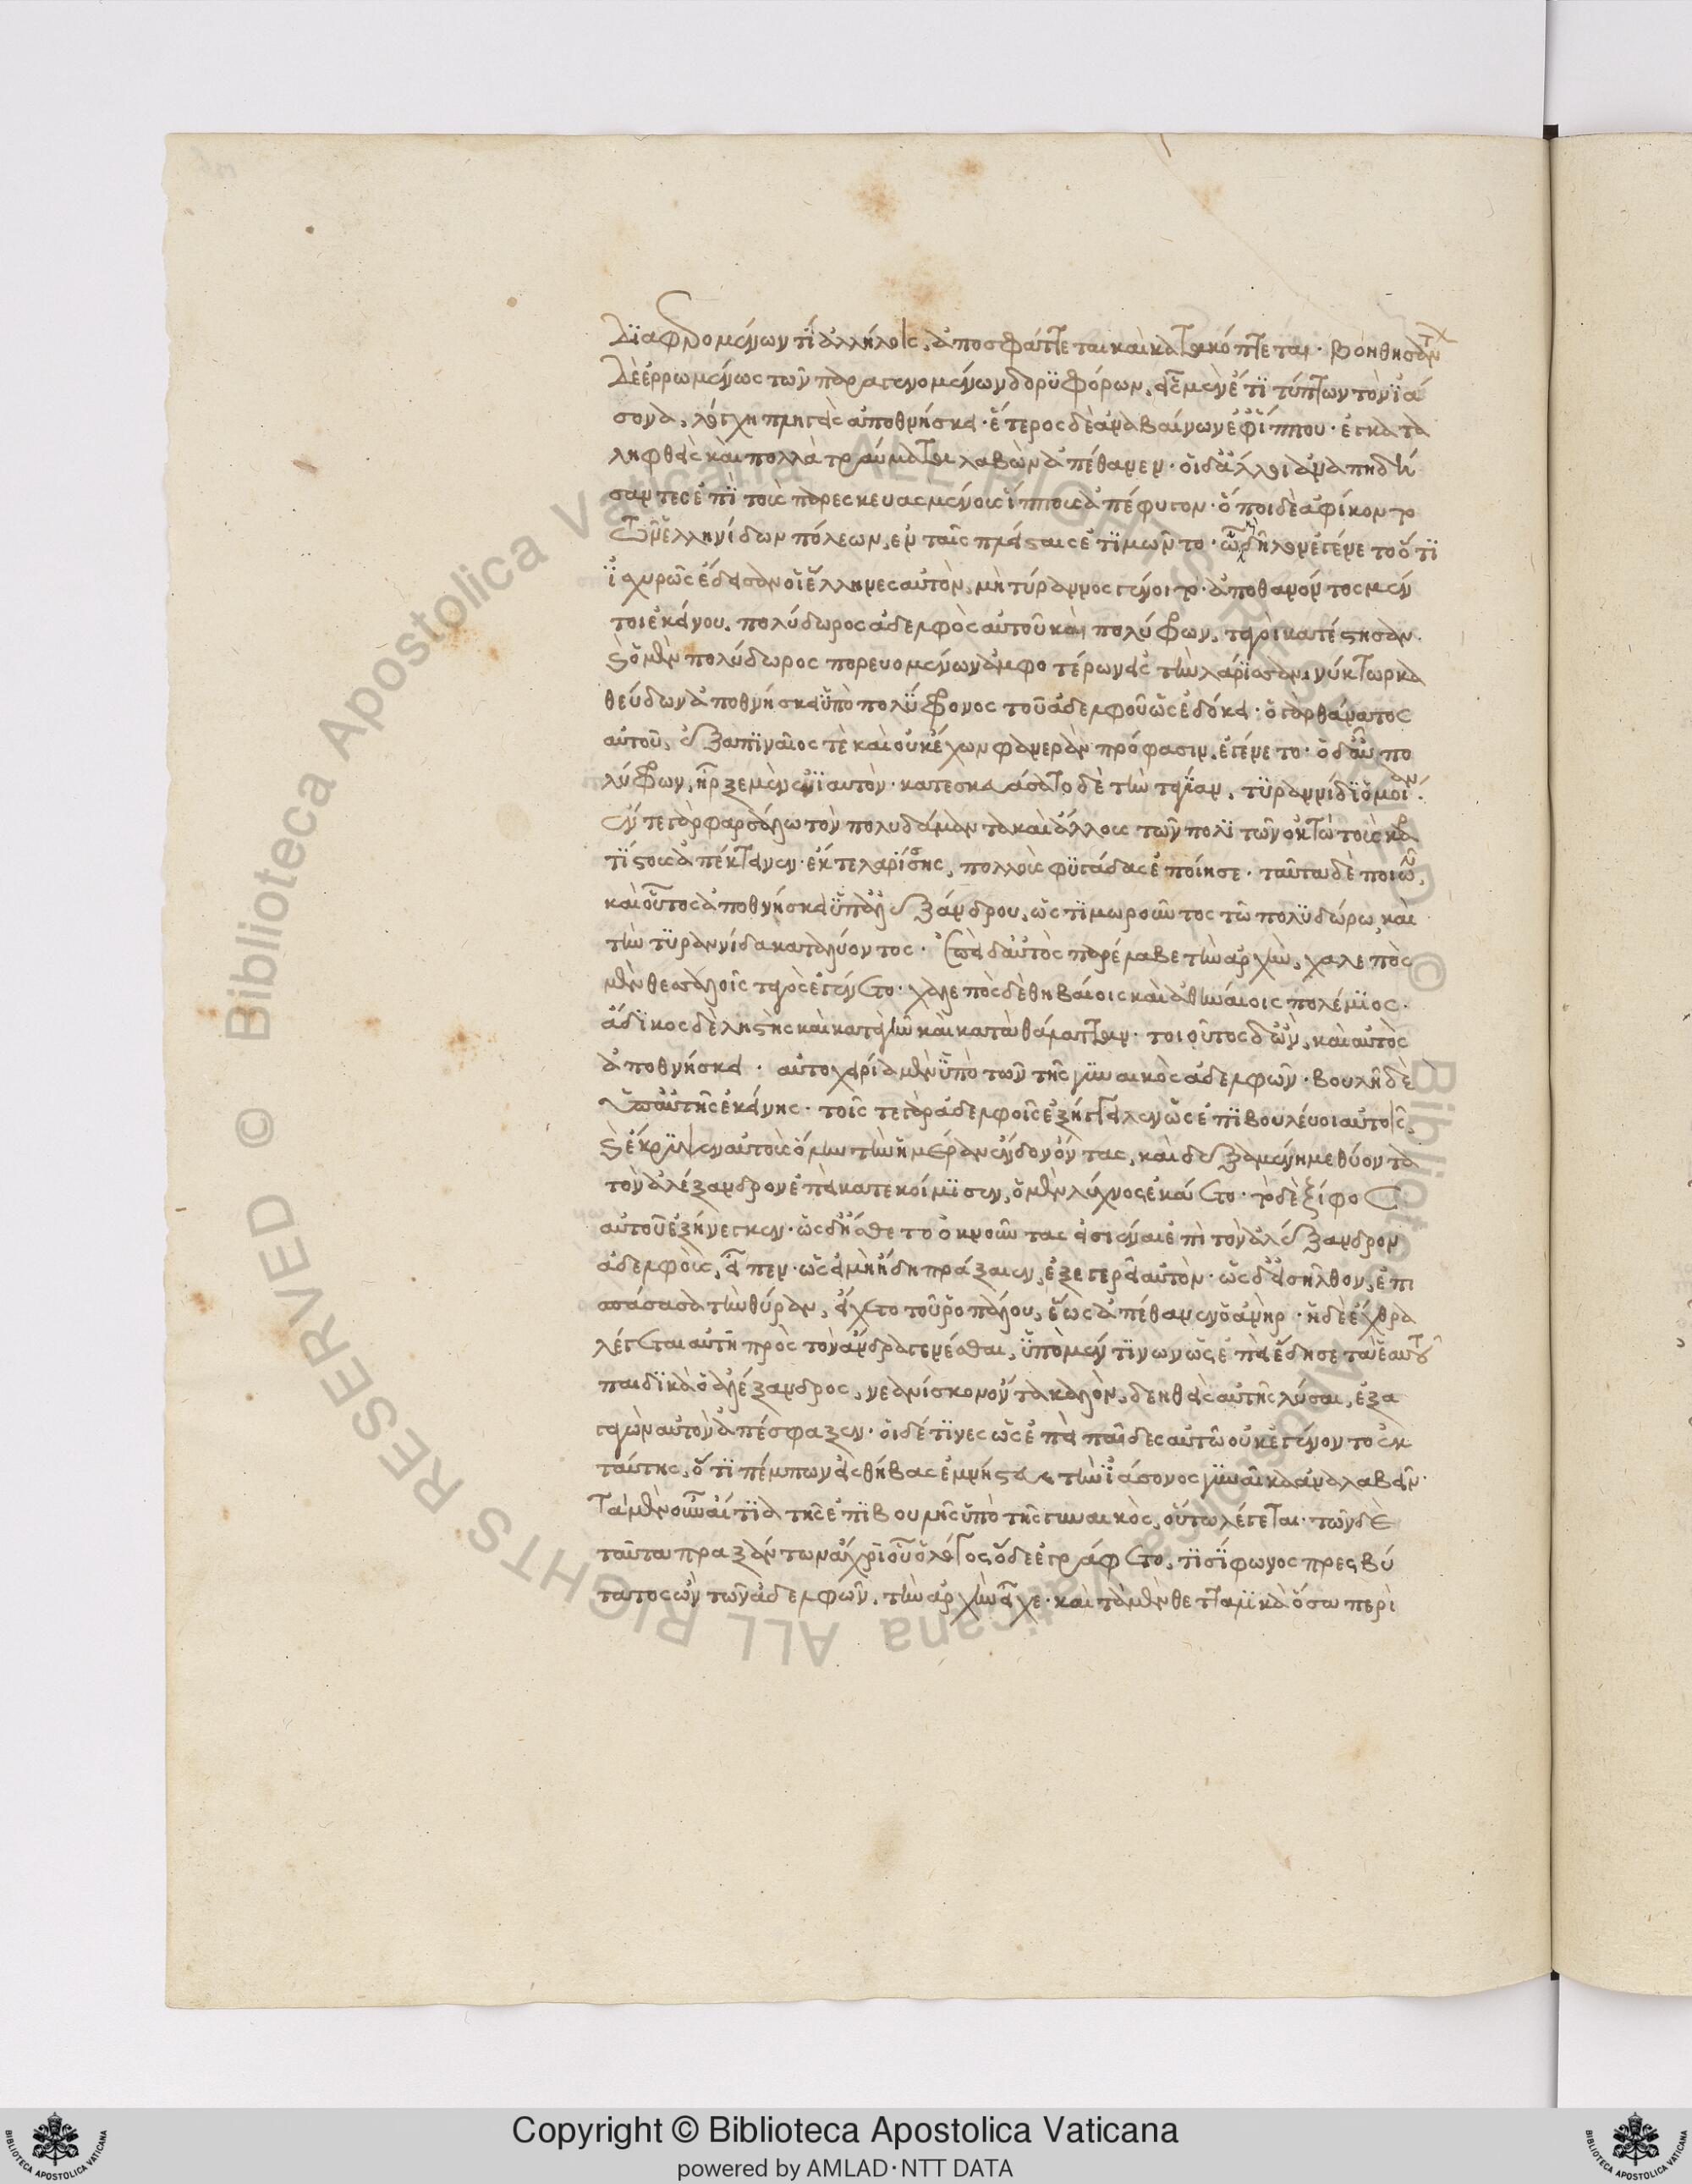 διαφερομένων τί ἀλλήλοις, ἀποσφάττεται καὶ κατακόπτεται. βοηθησάντων
δὲ ἐρρωμένως τῶν παραγενομένων δορυφόρων, εἷς μὲν ἔτι τύπτων τὸν ἰά
σονα, λόγχη πληγεὶς ἀποθνήσκει. ἕτερος δὲ ἀναβαίνων ἐφ' ἵππου. ἐγκατα
ληφθεὶς καὶ πολλὰ τραύματα λαβὼν ἀπέθανεν. οἱ δ' ἄλλοι ἀναπηδή
σαντες ἐπὶ τοὺς παρεσκευασμένους ἵππους ἀπέφυγον. ὅποι δὲ ἀφίκοντο
τῶν ἑλληνίδων πόλεων, ἐν ταῖς πλείσταις ἐτιμῶντο. ὧ καὶ δῆλον ἐγένετο ὅτι
ἰσχυρῶς ἔδεισαν οἱ ἕλληνες αὐτὸν, μὴ τύραννος γένοιτο. ἀποθανόντος μέν
τοι ἐκείνου, πολύδωρος ἀδελφὸς αὐτοῦ καὶ πολύφρων, ταγοὶ κατέστησαν.
καὶ ὁ μὲν πολύδωρος πορευομένων ἀμφοτέρων εἰς τὴν λάρισαν, νύκτωρ κα
θεύδων ἀποθνήσκει ὑπὸ πολύφρονος τοῦ ἀδελφοῦ ὡς ἐδόκει. ὁ γὰρ θάνατος
αὐτοῦ, ἐξαπιναῖός τε καὶ οὐκ ἔχων φανερὰν πρόφασιν, ἐγένετο. ὁ δ' αὖ πο
λύφρων, ἦρξε μὲν ἐνιαυτὸν. κατεσκευάσατο δὲ τὴν ταγείαν, τυραννίδι ὁμοίαν.
ἔν τε γὰρ φαρσάλω τὸν πολυδάμαντα καὶ ἄλλους τῶν πολιτῶν ὀκτὼ τοὺς κρα
τίστους ἀπέκτεινεν. ἔκ τε λαρίσσης, πολλοὺς φυγάδας ἐποίησε. ταῦτα δὲ ποιῶν,
καὶ οὗτος ἀποθνήσκει ὑπ' ἀλεξάνδρου, ὡς τιμωροῦντος τῶ πολυδώρω, καὶ
τὴν τυραννίδα καταλύοντος. ἐπεὶ δ' αὐτὸς παρέλαβε τὴν ἀρχὴν, χαλεπὸς
μὲν θεσσαλοῖς ταγὸς ἐγένετο. χαλεπὸς δὲ θηβαίοις καὶ ἀθηναίοις πολέμιος.
ἄδικος δὲ ληστὴς καὶ κατὰ γῆν καὶ κατὰ θάλατταν. τοιοῦτος δ' ὢν, καὶ αὐτὸς
ἀποθνήσκει. αὐτοχειρία μὲν ὑπὸ τῶν τῆς γυναικὸς ἀδελφῶν. βουλῆ δὲ
ὑπ' αὐτῆς ἐκείνης. τοῖς τε γὰρ ἀδελφοῖς ἐξήγγειλεν ὡς ἐπιβουλεύοι αὐτοῖς,
καὶ ἔκρυψεν αὐτοὺς ὅλην τὴν ἡμέραν ἔνδον ὄντας, καὶ δεξαμένη μεθύοντα
τὸν ἀλέξανδρον ἐπεὶ κατεκοίμισεν, ὁ μὲν λύχνος ἐκάετο. τὸ δὲ ξίφος
αὐτοῦ ἐξήνεγκεν. ὡς δ' ἤσθετο ὀκνοῦντας εἰσιέναι ἐπὶ τὸν ἀλέξανδρον
ἀδελφοὺς, εἶπεν. ὡς εἰ μὴ ἤδη πράξαιεν, ἐξεγερεῖ αὐτὸν. ὡς δ' εἰσῆλθον, ἐπι
σπάσασα τὴν θύραν, εἴχετο τοῦ ῥοπάλου, ἕως ἀπέθανεν ὁ ἀνὴρ. ἡ δὲ ἔχθρα
λέγεται αὐτῆ πρὸς τὸν ἄνδρα γενέσθαι, ὑπὸ μέν τινων ὡς ἐπεὶ ἔδησε τὰ ἑαυτοῦ
παιδικὰ ὁ ἀλέξανδρος, νεανίσκον ὄντα καλὸν, δεηθεὶς αὐτῆς λῦσαι, ἐξα
γαγὼν αὐτὸν ἀπέσφαξεν. οἱ δέ τινες ὡς ἐπεὶ παῖδες αὐτῶ οὐκ ἐγένοντο ἐκ
ταύτης, ὅτι πέμπων εἰς θήβας ἐμνήστευε τὴν ἰάσονος γυναῖκα ἀναλαβεῖν.
τὰ μὲν οὖν αἴτια τῆς ἐπιβουλῆς ὑπὸ τῆς γυναικὸς, οὕτω λέγεται. τῶν δὲ
ταῦτα πραξάντων ἄχρι οὗ ὁ λόγος ὅδε ἐγράφετο, τισίφωνος πρεσβύ
τατος ὢν τῶν ἀδελφῶν, τὴν ἀρχὴν εἶχε. καὶ τὰ μὲν θετταλικὰ ὅσα περὶ